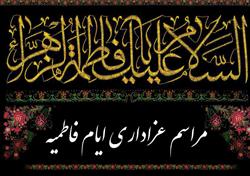 السلام علیک یا فاطمة الزهراء
مراسم عزاداری ایام فاطمیه